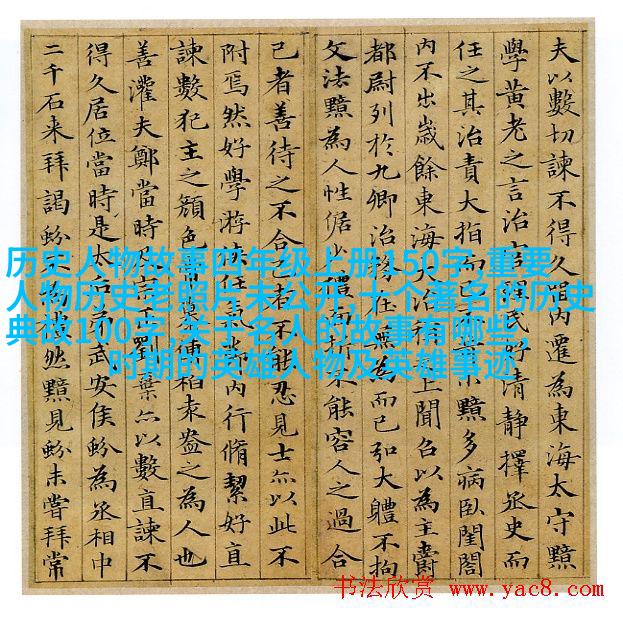 夫以數切諫不得久內遷為東海太守黯
學黃老之言治官民好清靜擇丞史而
任之其治責大指而已黯多病臥閨閤
內不出歲餘東海治上聞召以為主爵
都尉列於九卿治務在為而已弘大體不拘
文法黯為人性倨少禮面折不能容人之過合
己者善待之不合己者不能忍見士亦以此不
附焉然好學游俠任氣節內行脩絜好直
諫數犯主之顏色慕傅柏袁盎之為人也
善灌夫鄭當時及宗正劉棄亦以數直諫不
得久居位當時是太后弟武安侯蚡為丞相中
二千石来拜謁蚡然黯見蚡未嘗拜常
历史人物故事四年级上册150字,重要
人物历史老照片未公开,十个著名的历史
典故100字,关于名人的故事有哪些,
时期的英雄人物及英雄事迹
书法欣赏 www.yac8.com